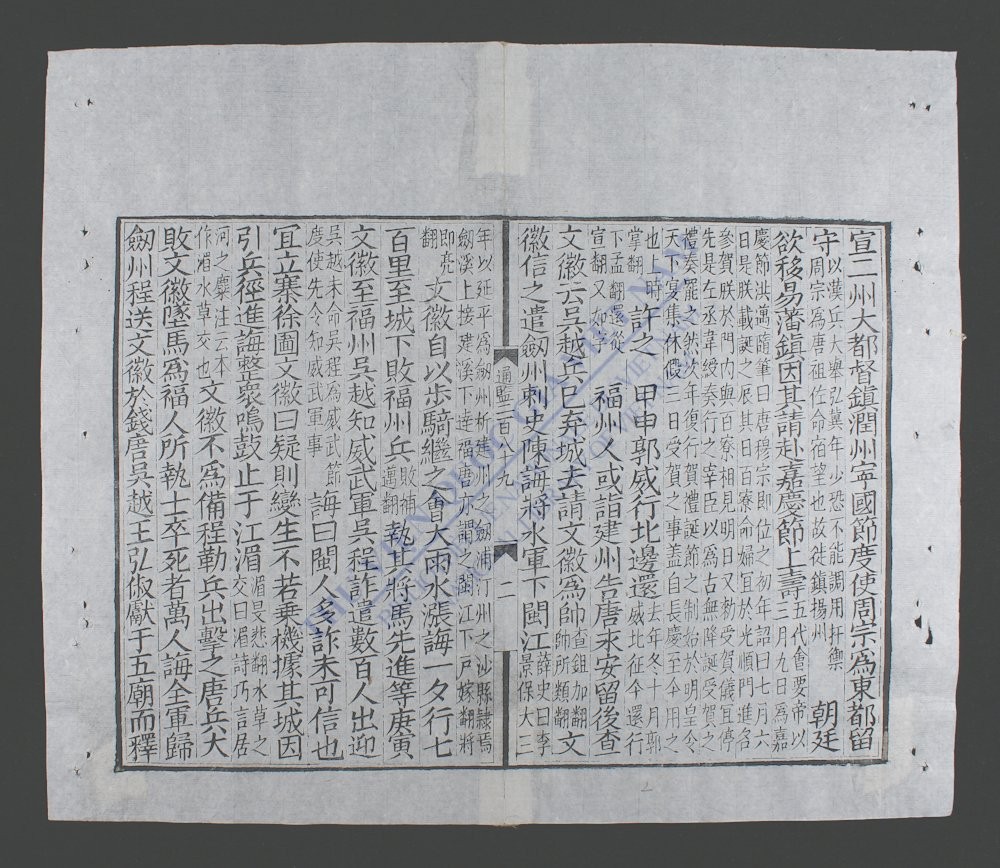 宣二州大都督鎮潤州寧國節度使周宗為東都留
守以漢兵大舉弘冀年少恐不能調用扞禦
周宗為唐祖佐命宿望也故徙鎮揚州
朝廷
欲移易藩鎮因其請赴嘉慶節上壽五代會要帝以
三月九日為嘉
慶節洪邁隨筆曰唐穆宗即位之初年詔曰七月六
日是朕載誕之辰其日百寮命婦宜於光順門進名
參賀朕於門內與百寮相見明日又勑受賀儀宜停
先是左丞韋綬奏行之宰臣以為古無降誕受賀之
禮奏罷之然次年復行賀禮誕節之制始於明皇令
天下宴集休假三日受賀之事蓋自長慶至今用之
也上時
掌翻
許之 甲申郭威行北邊還去年冬十月郭
威北征今還行
下孟翻還從
宣翻又如字
福州人或詣建州告唐永安留後查
文徽云吳越兵已弃城去請文徽為帥查鉏加翻
帥所類翻
文
徽信之遣劔州刺史陳誨將水軍下閩江薛史曰李
景保大三
通鑑二百八九 二
年以延平為劔州析建州之劔浦汀州之沙縣隸焉
劔溪上接建溪下達福唐亦謂之閩江下戸嫁翻將
即亮
翻
文徽自以步騎繼之會大雨水漲誨一夕行七
百里至城下敗福州兵敗補
邁翻
執其將馬先進等庚寅
文徽至福州吳越知威武軍吳程詐遣數百人出迎
吳越未命吳程為威武節
度使先令知威武軍事
誨曰閩人多詐未可信也
宜立寨徐圖文徽曰疑則變生不若乗機據其城因
引兵徑進誨整衆鳴鼓止于江湄湄旻悲翻水草之
交曰湄詩巧言居
河之麋注云本
作湄水草交也
文徽不為備程勒兵出擊之唐兵大
敗文徽墜馬為福人所執士卒死者萬人誨全軍歸
劔州程送文徽於錢唐吳越王弘俶獻于五廟而釋